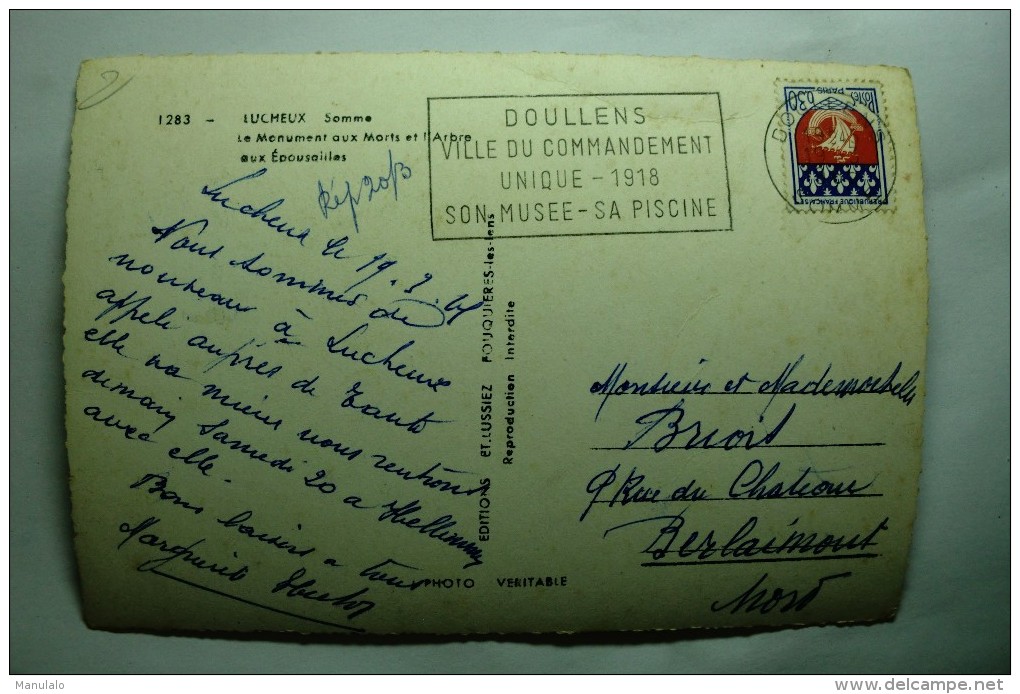 1283 - LUCHEUX Somme
Le Monument aux Morts et l'Arbre
aux Épousailles
Rép 20/3
DOULLENS
VILLE DU COMMANDEMENT
UNIQUE - 1918
SON MUSEE - SA PISCINE
0,30
PARIS
REPUBLIQUE FRANCAISE
Lucheux le 19.3.
Nous sommes de
nouveau à Lucheux
appelé auprès de Tante
elle va mieux nous rentrons
demain Samedi 20 a
avec elle.
Bons baisers a tous
Marguerite
EDITIONS ET. LUSSIEZ FOUQUIERES-les-lens
Reproduction Interdite
PHOTO VERITABLE
Monsieur et Mademoiselle
Briois
9 Rue du Chateau
Berlaimont
Nord
Manulalo
www.delcampe.net